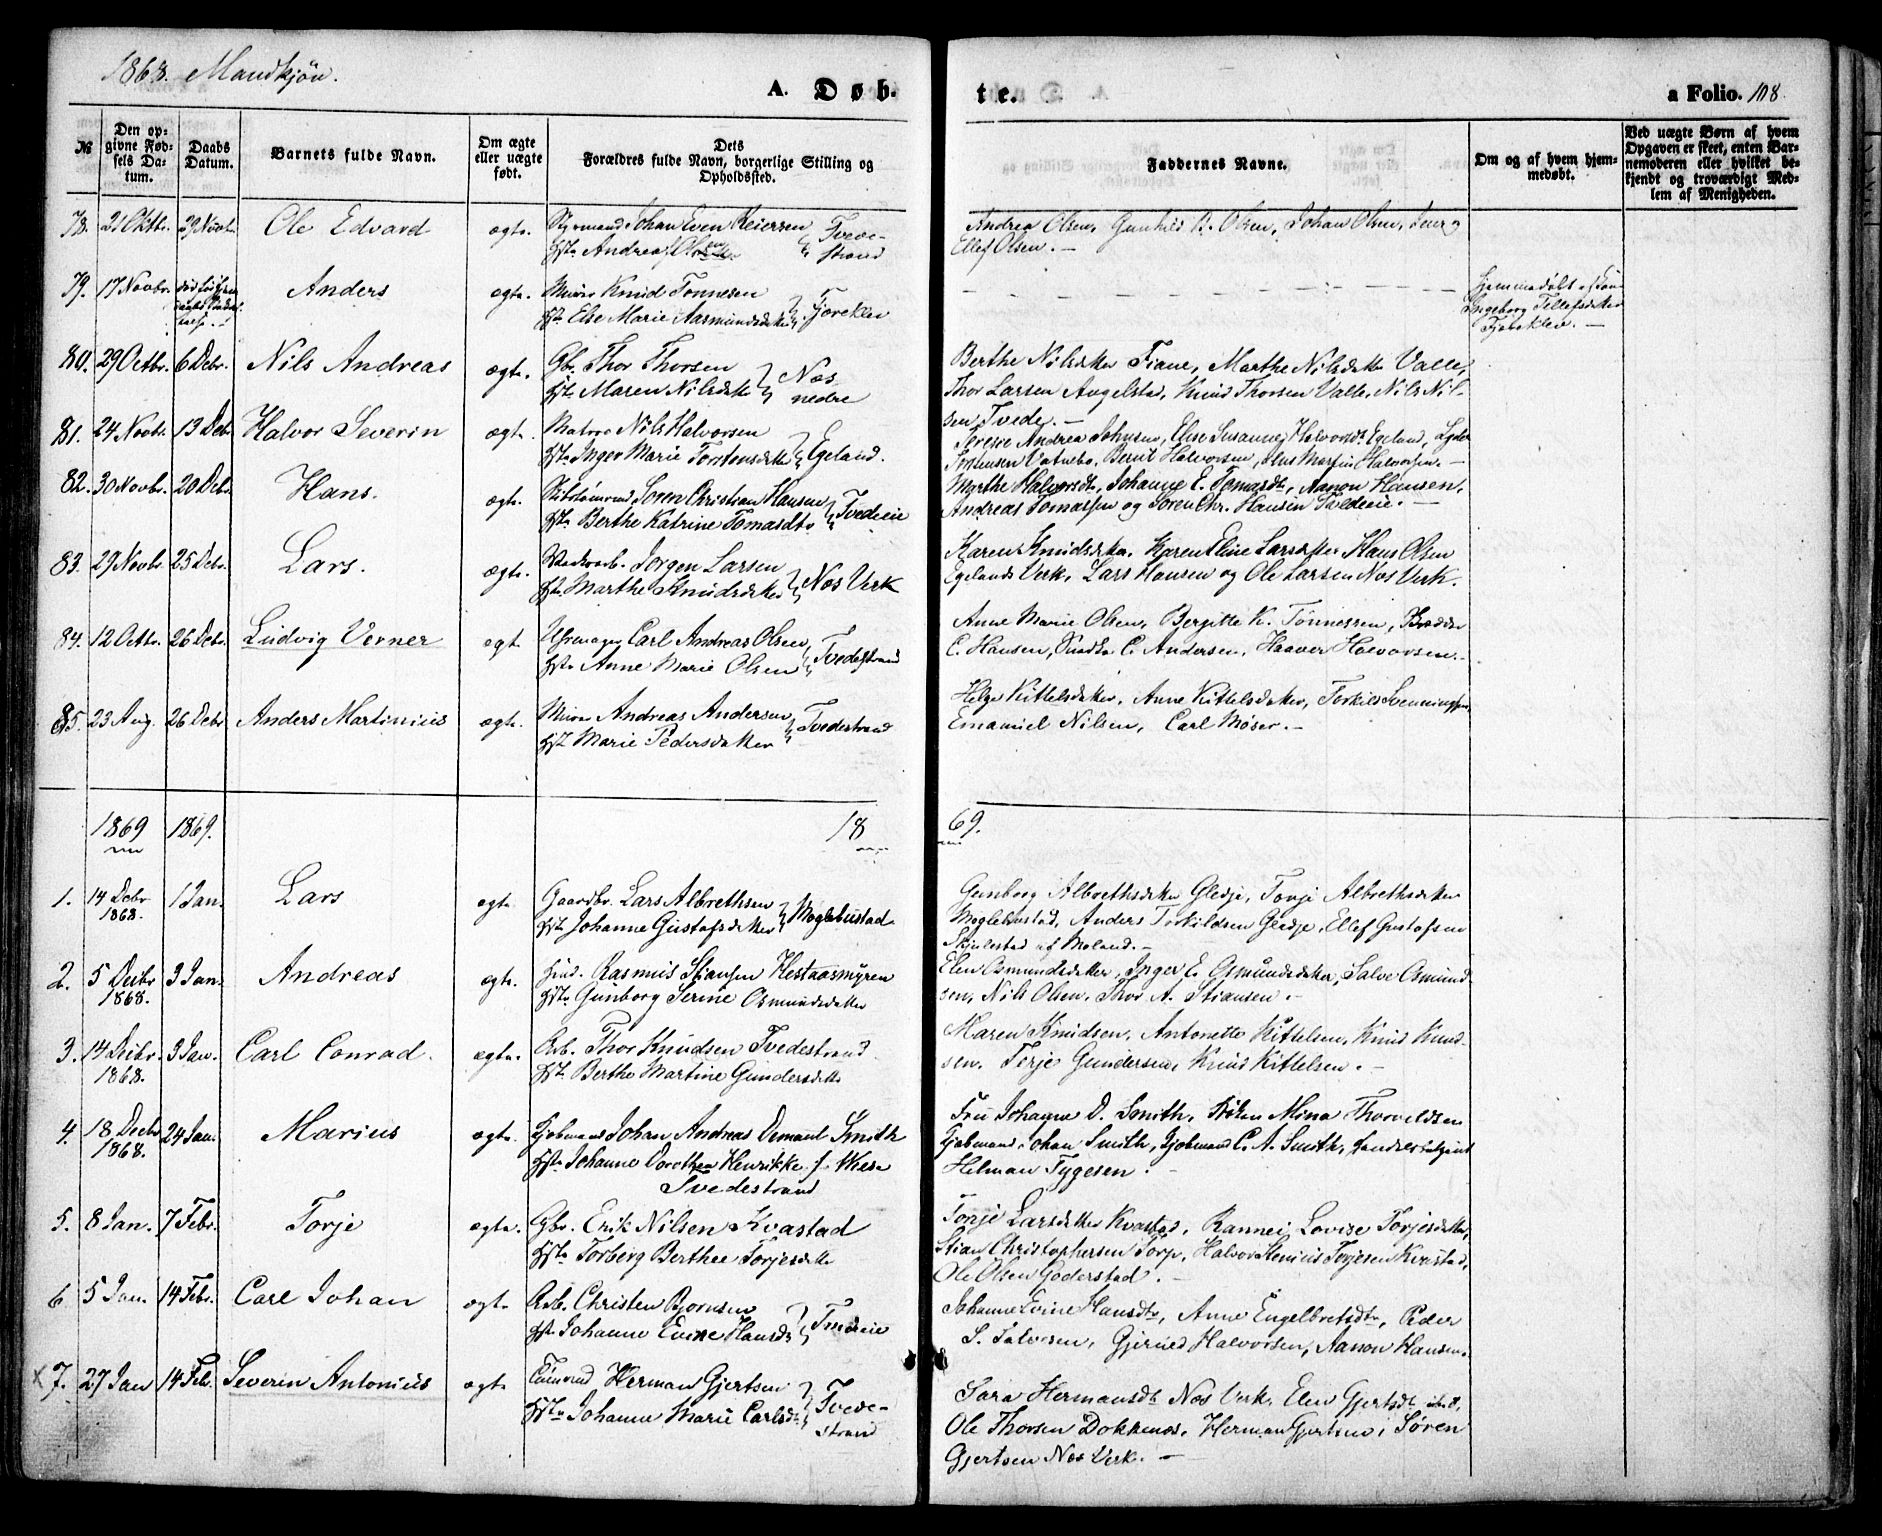 1868. Mandkjøn.
A. Døb-
te.
a Folio. 108.
№
Den opgivne Fødsels Datum.
Daabs Datum.
Barnets fulde Navn.
Om ægte eller uægte født.
Dets Forældres fulde Navn, borgerlige Stilling og Opholdssted.
Faddernes Navne.
Om og af hvem hjemmedøbt.
Ved uægte Børn af hvem Opgaven er skeet, enten Barnemoderen eller hvilket bekjendt og troværdigt Medlem af Menigheden.
78. 21 Oktb. 29 Novb. Ole Edvard ægte. Styrmand Johan Even Reiersen
Hst. Andrea Olsen Tvedestrand
Andrea Olsen, Gunhild B. Olsen, Johan Olsen,
Ellef Olsen. —
79. 17 Novbr. Anders ægte. Murer Knud Tønnesen
Hst. Else Marie Aasmundsdatter Fjæreklev
Hjemmedøbt af
Ingeborg Tellefsdatter
80. 29 Octbr. 6 Debr. Nils Andreas ægte. Gb. Thor Thorsen
Hst. Maren Nilsdatter Næs nedre
Berthe Nilsdatter Fiane, Marthe Nilsdatter Valle,
Thor Larsen Angelstad, Knud Thorsen Valle, Nils Nil-
sen Tvede. —
81. 24 Novbr. 13 Deb. Halvor Severin ægte. Matros Nils Halvorsen
Hst. Inger Marie Torstensdatter Egeland.
Andrea Johnsen, Elise Susanne Halvorsdt. Egeland,
Sørensen Vatnebo, Bernt Halvorsen, Martin Halvorsen. —
82. 30 Novbr. 20 Deb. Hans. ægte. Søren Christian Hansen
Hst. Berthe Katrine Tomasdt. Tvedeeie
Marthe Halvorsdt., Johanne E. Tomasdt., Aanon Hansen,
Andreas Tomassen og Søren Chr. Hansen Tvedeeie. —
83. 29 Novbr. 25 Debr. Lars. ægte. Jørgen Larsen
Hst. Marthe Knudsdatter Næs Verk
Karen Knudsdatter, Karen Eline Larsdatter Hans Olsen
Egelands Verk, Lars Hansen og Ole Larsen Næs Verk.
84. 12 Octbr. 26 Debr. Ludvig Verner ægt. Uhrmager Carl Andreas Olsen
Hst. Anne Marie Olsen Tvedestrand
Anne Marie Olsen, Bergitte K. Tønnessen,
C. Hansen, C. Andersen, Haaver Halvorsen. —
85. 23 Aug. 26 Debr Anders Martinius ægte. Murer Andreas Andersen
Hst. Marie Pedersdatter Tvedestrand
Helge Kittelsdatter, Anne Kittelsdatter, Torkild Svenningsen,
Emanuel Nilsen, Carl Møser. —
1869 1869. 18 69.
1. 14 Debr 1868. 1 Jan. Lars ægte. Gaardbr. Lars Albrethsen
Hst. Johanne Gustafsdatter Moglebustad
Gunborg Albrethsdatter Gledje, Torje Albrethsdatter
Moglebustad, Anders Torkildsen Gledje, Ellef Gustafsen
Skjulestad af Moland. —
2. 5 Decbr 1868. 3 Jan. Andreas ægte. Rasmus Stiansen Hestaasmyren
Hst. Gunborg Serine Osmundsdatter
Elen Osmundsdatter, Inger E. Osmundsdatter, Salve Osmund-
sen, Nils Olsen, Thor A. Stiansen. —
3. 14 Decbr. 1868. 3 Jan. Carl Conrad. ægte. Arb. Thor Knudsen Tvedestrand
Hst. Berthe Martine Gundersdatter
Maren Knudsen, Antonette Kittelsen, Knud Knud-
sen, Terje Gundersen, Knud Kittelsen. —
4. 18 Decbr 1868. 24 Jan. Marius ægte. Kjøbmand Johan Andreas Demant Smith
Hst. Johanne Dorothea Henrikke f. Wiese
Tvedestrand
Fru Johanne D. Smith, Frøken Mina Thorvaldsen
Kjøbmand Johan Smith, Kjøbmand C. A. Smith, Handelsbetjent
Helman Tygesen. —
5. 8 Jan. 7 Febr. Torje ægte. Gbr. Erik Nilsen Kvastad
Hst. Torberg Berthee Torjesdatter
Tonje Larsdatter Kvastad, Rannei Lovise Torjesdatter,
Stian Christophersen Torp, Halvor Stenius Torjesen Kvastad,
Ole Olsen Goderstad. —
6 5 Jan. 14 Febr. Carl Johan ægte Arb. Christen Bjørnsen
Hst. Johanne Evine Hansdt. Tvedeeie
Johanne Evine Hansdt, Anne Engelbretsdt, Peder
S. Salvesen, Gjerued Halvorsen, Aanon Hansen.
x 7. 27 Jan 14 Feb. Severin Antonius ægte Tømmermd Herman Gjertsen
Hst. Johanne Marie Carlsdt. Tvede-
strand
Sara Hermansdt. Næs Verk, Elen Gjertsdt. ibid,
Ole Thorsen Dokkenæs, Herman Gjertsen, Søren
Gjertsen Næs Verk. —